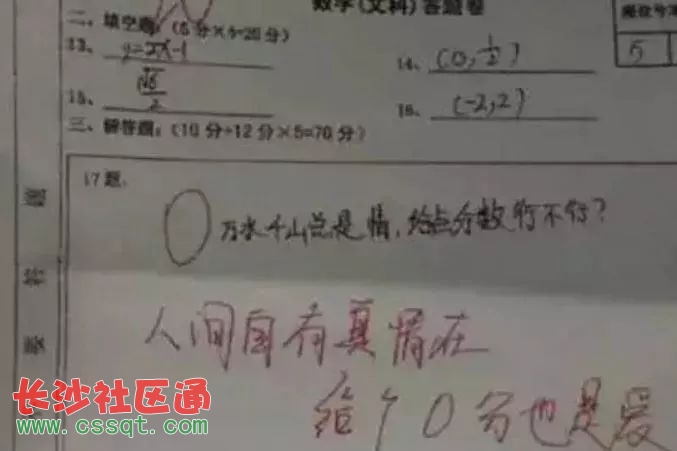 数学(文科)答题卷
座位号
二、填空题:(5分×4=20分)
5
13、y=2x-1
14、(0,1/2)
15、√6/2
16、(-2,2)
三、解答题:(10分+12分×5=70分)
17题:
万水千山总是情,给点分数行不行?
人间自有真情在
给个0分也是爱
长沙社区通
www.cssqt.com